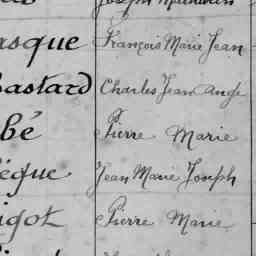 Joseph Mathurin
asque François Marie Jean
Bastard Charles Jean Ange
bé Pierre Marie
èque Jean Marie Joseph
igot Pierre Marie